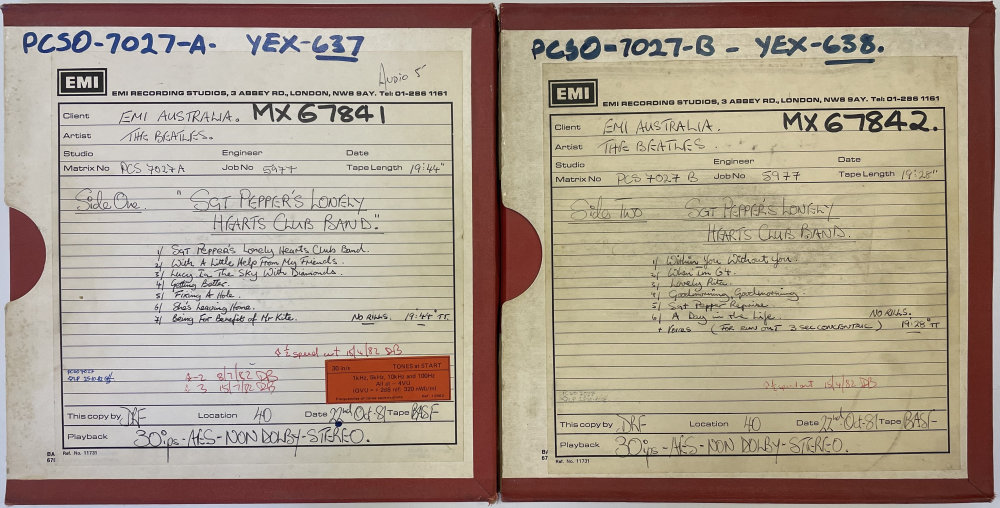 PCSO-7027-A- YEX-637
Audio 5
EMI
EMI RECORDING STUDIOS, 3 ABBEY RD., LONDON, NW8 9AY. Tel: 01-286 1161
Client EMI AUSTRALIA. MX 67841
Artist THE BEATLES.
Studio Engineer Date
Matrix No PCS 7027 A Job No 5977 Tape Length 19:44"
Side One. "SGT PEPPER'S LONELY
HEARTS CLUB BAND."
1/ SGT PEPPER'S Lonely Hearts Club Band.
2/ With A Little Help From My Friends.
3/ Lucy In The Sky With Diamonds.
4/ Getting Better.
5/ Fixing A Hole.
6/ She's Leaving Home.
7/ Being For Benefit of Mr Kite. NO RILLS. 19:44" TT
½ speed cut 15/4/82 DB
A-2 8/7/82 DB
3 15/7/82 DB
30 in/s TONES at START
1kHz, 5kHz, 10kHz and 100Hz
All at - 4VU
This copy by DRF Location 40 Date 22nd Oct-81 Tape BASF
Playback 30ips-AES-NON DOLBY-STEREO.
Ref. No. 11731
PCSO-7027-B - YEX-638.
EMI
EMI RECORDING STUDIOS, 3 ABBEY RD., LONDON, NW8 9AY. Tel: 01-286 1161
Client EMI AUSTRALIA. MX 67842.
Artist THE BEATLES.
Studio Engineer Date
Matrix No PCS 7027 B Job No 5977 Tape Length 19:28"
Side Two SGT PEPPER'S LONELY
HEARTS CLUB BAND.
1/ Within You Without You.
2/ When I'm 64.
3/ Lovely Rita.
4/ Goodmorning, Goodmorning.
5/ Sgt Pepper Reprise.
6/ A Day in the Life. NO RILLS.
+ Voices (FOR RUN OUT 3 SEC CONCENTRIC) 19:28" TT
½ speed cut 15/4/82 DB
This copy by DRF Location 40 Date 22nd Oct-81 Tape BASF
Playback 30ips-AES-NON DOLBY-STEREO.
Ref. No. 11731